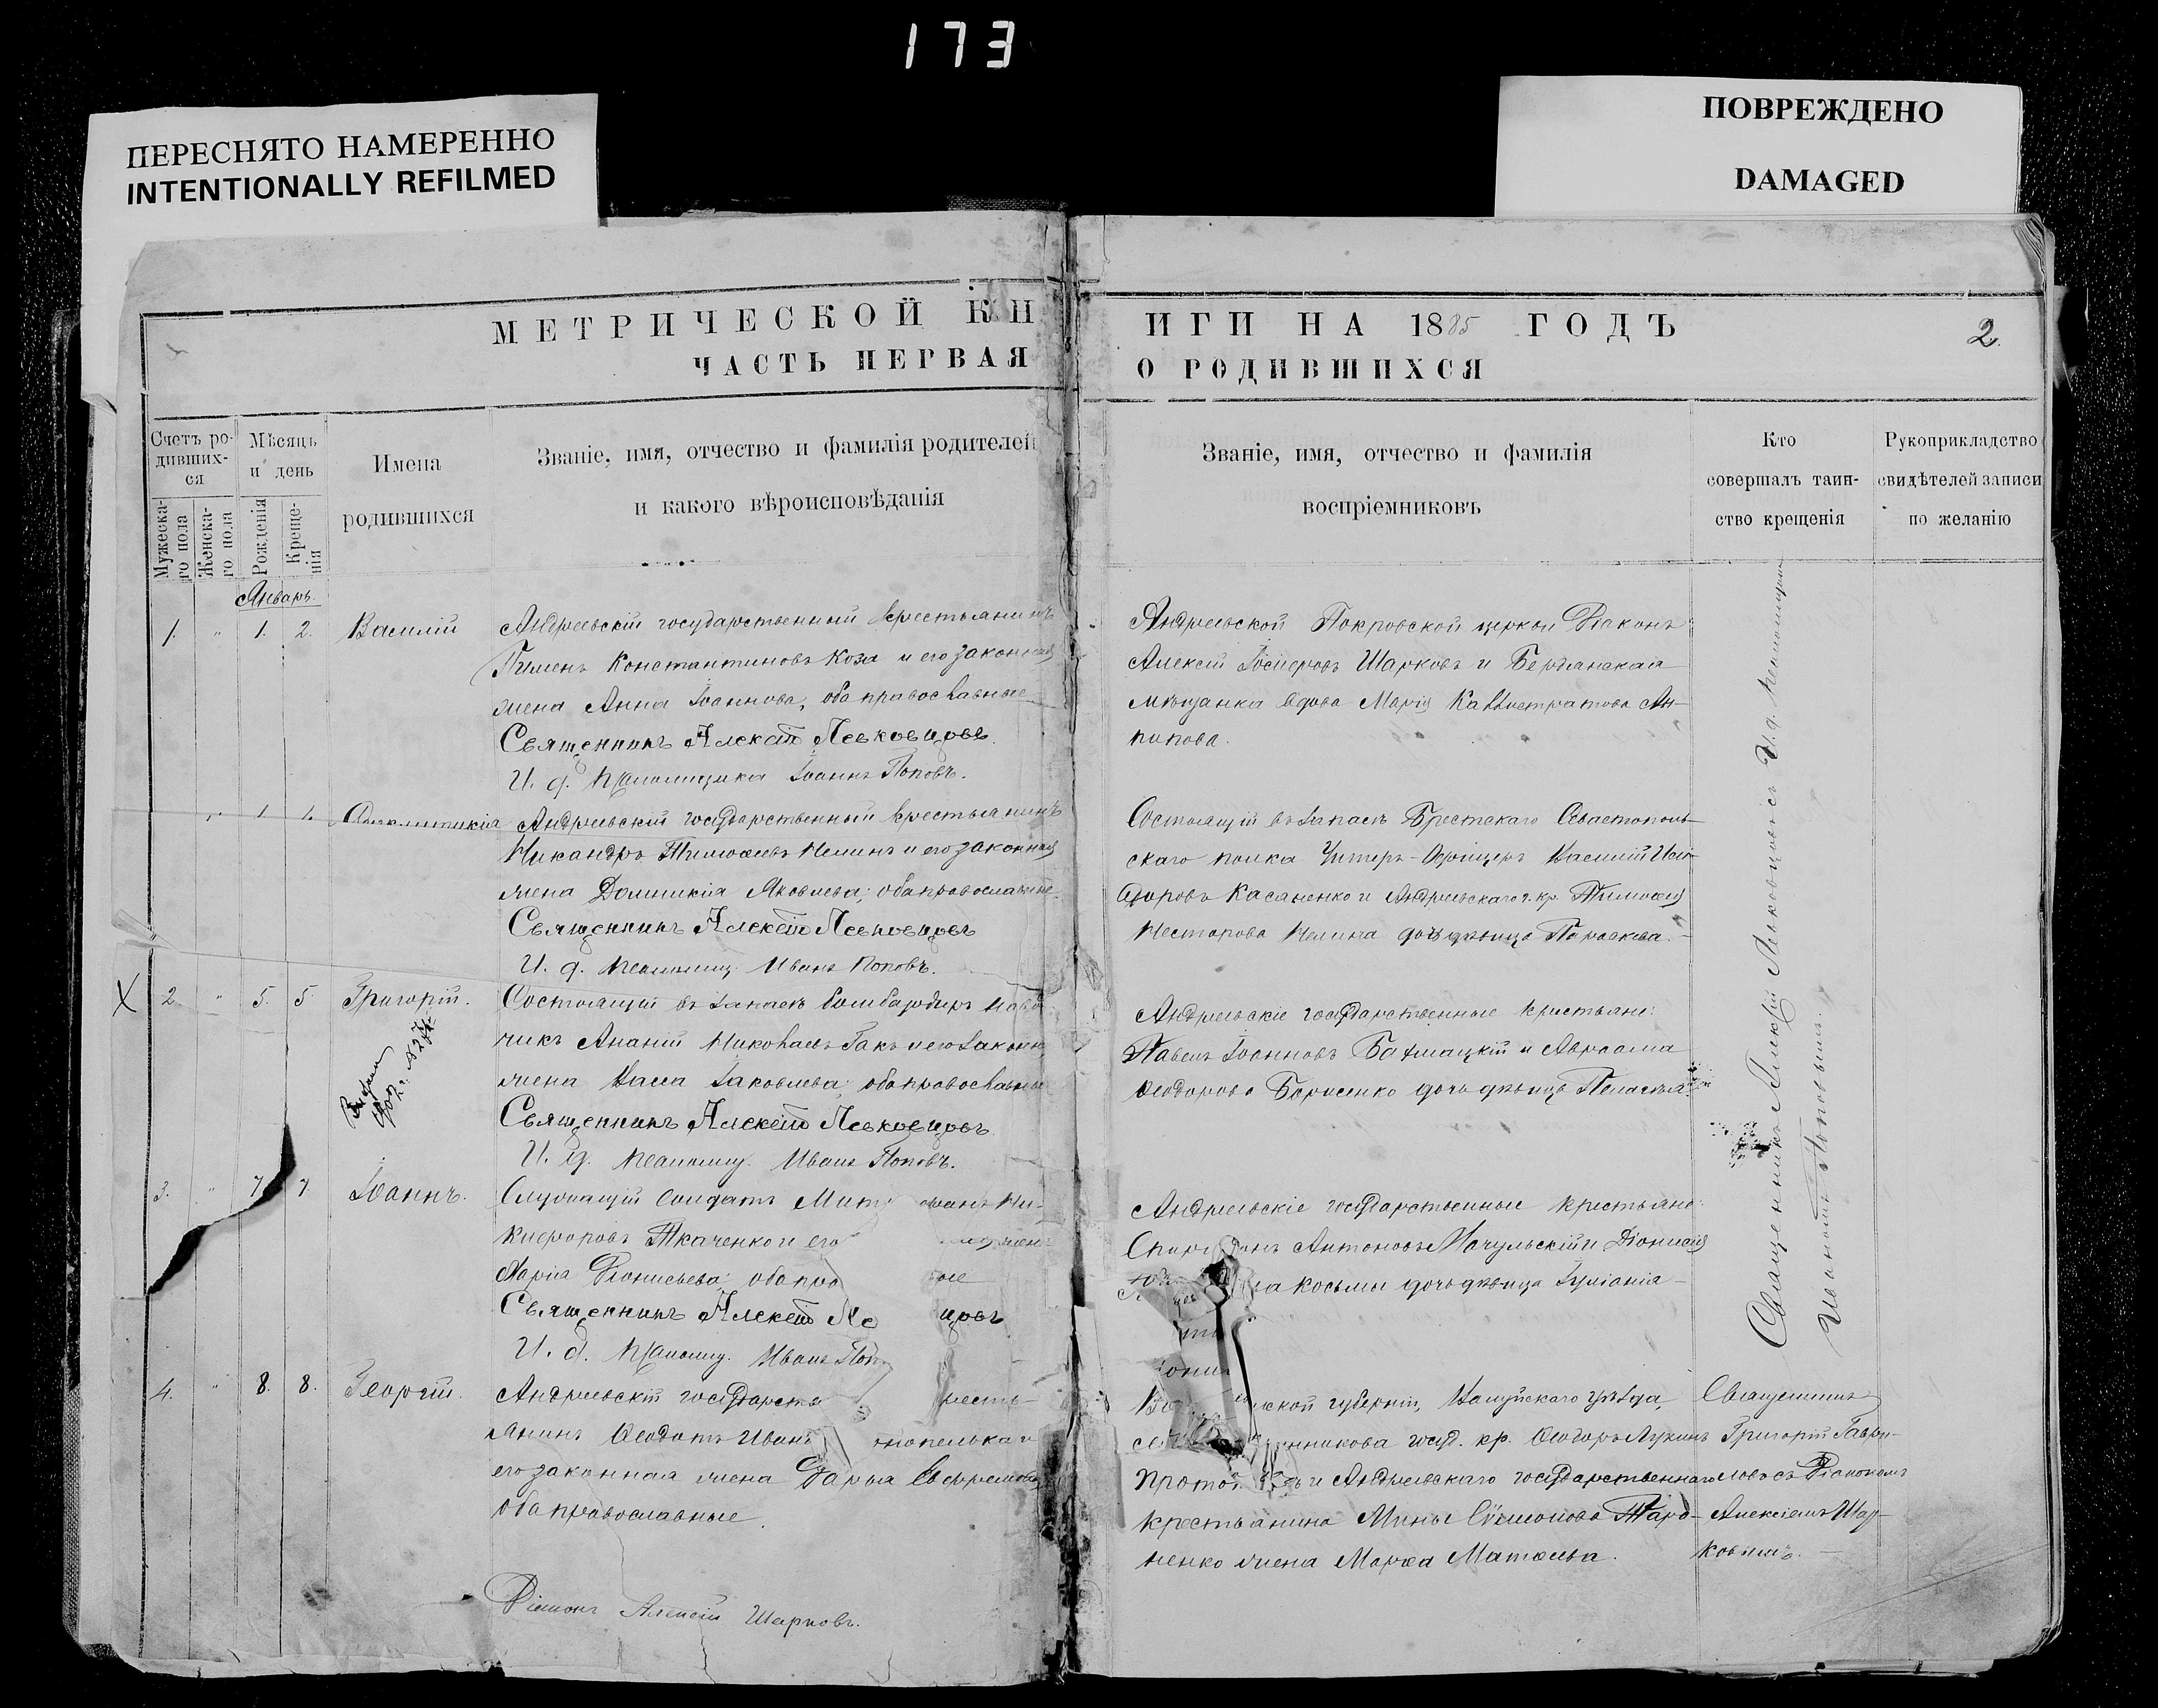 173
ПЕРЕСНЯТО НАМЕРЕННО
INTENTIONALLY REFILMED
ПОВРЕЖДЕНО
DAMAGED
МЕТРИЧЕСКОЙ КН
ЧАСТЬ ПЕРВАЯ
ИГИ НА 1885 ГОДЪ
О РОДИВШИХСЯ
2.
Счетъ ро-
дивших-
ся
Мужеска-
го пола
Женска-
го пола
Мѣсяцъ
и день
Рожденія
Креще-
нія
Имена
родившихся
Званіе, имя, отчество и фамилія родителей
и какого вѣроисповѣданія
Званіе, имя, отчество и фамилія
воспріемниковъ
Кто
совершалъ таин-
ство крещенія
Рукоприкладство
свидѣтелей записи
по желанію
Январь.
1. " 1. 2. Василій
Андреевскій государственный крестьянинъ
Пименъ Константиновъ Коза и его законная
жена Анна Іоаннова, оба православные
Священникъ Алексій Левковцовъ.
И. д. псаломщика Іоаннъ Поповъ.
Андреевской Покровской церкви Діаконъ
Алексій Іосифовъ Шарковъ и Бердянская
мѣщанка вдова Марія Каллистратова
" 1. 1.
Андреевскій государственный крестьянинъ
Никандръ Тимоѳеевъ и его законная
жена Домникія Яковлева; оба православные
Священникъ Алексій Левковцовъ
И. д. псаломщ. Иванъ Поповъ.
Состоящій въ запасѣ Брестскаго Севастополь-
скаго полка Унтеръ-Офицеръ Василій Иси-
доровъ Касяненко и Андреевскаго г. кр. Тимоѳея
Несторова дочь дѣвица Параскева.
Х 2. " 5. 5. Григорій.
Состоящій въ запасѣ бомбардиръ
Ананій Николаевъ Гакъ и его законн
жена Васса Іаковлева; оба православные
Священникъ Алексій Левковцовъ
И. д. псаломщ. Иванъ Поповъ.
Андреевскіе государственные крестьяне:
Павелъ Іоанновъ Бахмацкій и Авраама
Ѳеодорова Борисенко дочь дѣвица Пелагея.
3. " 7. 7. Іоаннъ.
Служащій солдатъ Ни-
кифоровъ Ткаченко и его
Марія Діонисьева; оба пра
Священникъ Алексій Ле цовъ
И. д. псаломщ. Иванъ Поп
Андреевскіе государственные крестьяне:
Антоновъ Мачульскій и Діонисія
Косьмы дочь дѣвица Іуліанія
4. " 8. 8. Георгій.
Андреевскій государств кресть-
янинъ Ѳеодотъ Иван и
его законная жена Дарья Ефремова,
оба православные.
Діаконъ Алексій Шарковъ.
ской губерніи, Валуйскаго уѣзда,
нникова госуд. кр. Ѳеодоръ Лукинъ
и Андреевскаго государственнаго
крестьянина Мины Сумеонова Тара-
ненко жена Марѳа Матѳеева.
Священникъ Алексій Левковцовъ съ И. д. псаломщика
Іоанномъ Поповымъ.
Священникъ
Григорій Гаври-
ловъ съ Діакономъ
Алексіемъ Шар-
ковымъ.